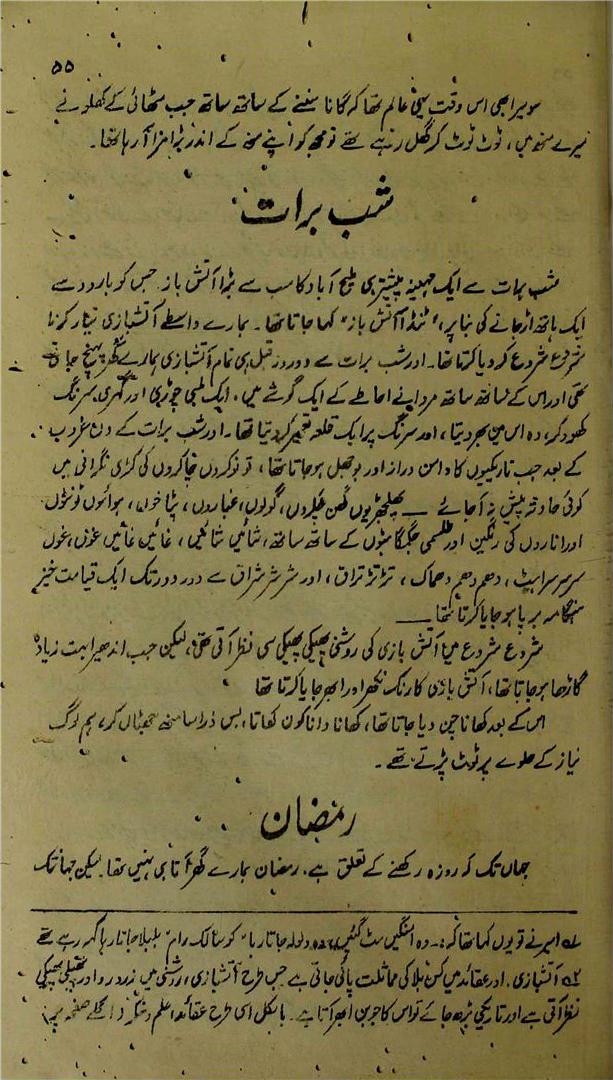 ۵۵
سویرا بھی اس وقت یہی عالم تھا کہ گانا سننے کے ساتھ ساتھ جب مٹھائی کے کھلونے
میرے منھ میں، ٹوٹ ٹوٹ کر گھل رہے تھے تو مجھ کو اپنے منھ کے اندر بڑا مزا آ رہا تھا۔
شب برات
شب برات سے ایک مہینہ پیشتر ہی ملیح آباد کا سب سے بڑا آتش باز جس کو بارود سے
ایک ہاتھ اڑ جانے کی بنا پر، "ٹنڈا آتش باز" کہا جاتا تھا۔ ہمارے واسطے آتشبازی تیار کرنا
شروع شروع کر دیا کرتا تھا۔ اور شب برات سے دو روز قبل ہی تمام آتشبازی ہمارے گھر پہنچ جاتی
تھی اور اس کے ساتھ ساتھ مردانے احاطے کے ایک گوشے میں، ایک لمبی چوڑی اور گہری سرنگ
کھود کر، وہ اس میں بھر دیتا، اور سرنگ پر ایک قلعہ تعمیر کر دیتا تھا۔ اور شب برات کے دن غروب
کے بعد جب تاریکیوں کا دامن دراز اور بوجھل ہو جاتا تھا، تو نوکروں چاکروں کی کڑی نگرانی میں
کوئی حادثہ پیش نہ آ جائے — پھلجھڑیوں گھن چکروں، گولوں، غباروں، پٹاخوں، ہوائوں ٹونٹوں
اور اناروں کی رنگین اور طلسمی جگمگاہٹوں کے ساتھ ساتھ، شائیں شائیں، غائیں غائیں غوں، غوں
سرسراہٹ، دھم دھم دھماک، تڑ تڑ تڑاق، اور شر شر شراق سے دور دور تک ایک قیامت خیز
ہنگامہ برپا ہو جایا کرتا تھا —
شروع شروع میں آتش بازی کی روشنی پھیکی پھیکی سی نظر آتی تھی، لیکن جب اندھیرا بہت زیادہ
گاڑھا ہو جاتا تھا، آتش بازی کا رنگ نکھر اور ابھر جایا کرتا تھا
اس کے بعد کھانا چن دیا جاتا تھا، کھانا وانا کون کھاتا، بس ذرا سا منھ جھٹال کر، ہم لوگ
نیاز کے حلوے پر ٹوٹ پڑتے تھے۔
رمضان
جہاں تک کہ روزہ رکھنے کے تعلق ہے، رمضان ہمارے گھر آتا ہی نہیں تھا۔ لیکن جہاں تک
۱؎ امیر نے تو یوں کہا تھا کہ:- وہ امنگیں مٹ گئیں وہ ولولہ جاتا رہا" کو سالک رام "بلبلا جاتا رہا کہہ رہے تھے
۲؎ آتشبازی، اور عقائد میں کس بلا کی مماثلت پائی جاتی ہے جس طرح آتشبازی، روشنی میں زرد رو اور پھیکی پھیکی
نظر آتی ہے اور تاریکی بڑھ جائے تو اس کا جوبن ابھر آتا ہے۔ بالکل اسی طرح عقائد، علم و فکر (اگلے صفحہ پر)